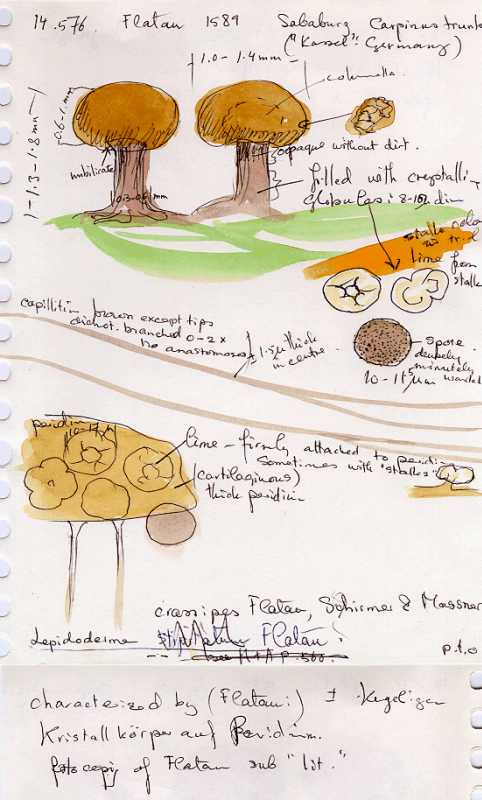 14.576. Flatau 1589 Sababurg Carpinus trunk
("Kassel": Germany)
1.0 - 1.4 mm
columella.
1.3 - 1.8 mm
umbilicate
opaque without dirt.
filled with crystalli-
globules: 8-10 diam
stalk colo
lime from
stalk
capilliti- brown except tips
dichot. branched 0-2x
no anastomoses
1.5µ thick
in centre.
spore
densely
minutely
10-11,5µm warted
peridium
lime - firmly attached to peridium
Sometimes with "stalks"
(cartilaginous)
thick peridium
crassipes Flatau, Schirmer & Massner
Lepidoderma Flatau
p.t.o
see p. 560.
characterized by (Flatau:) ± Kugeligen
Kristallkörper auf Peridium.
foto copy of Flatau sub "lit."